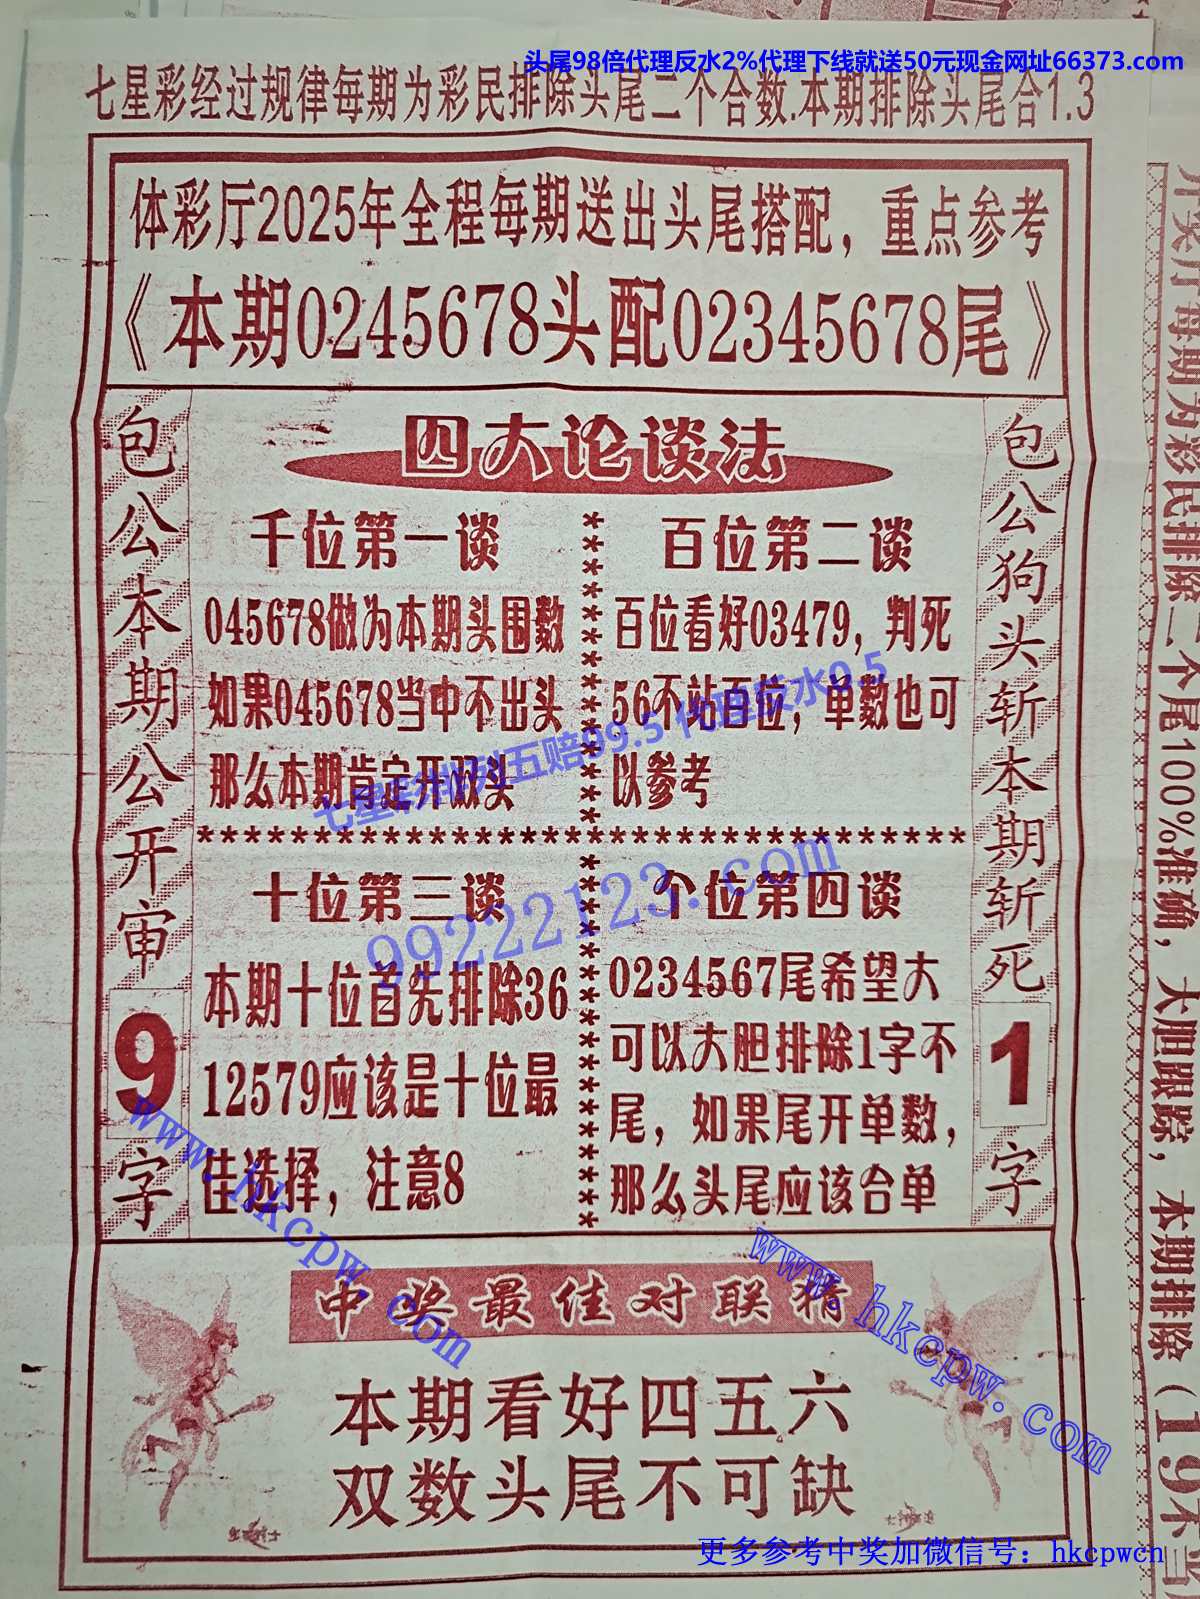 头尾98倍代理反水2%代理下线就送50元现金网址66373.com
七星彩经过规律每期为彩民排除头尾二个合数.本期排除头尾合1.3
体彩厅2025年全程每期送出头尾搭配，重点参考
《本期0245678头配02345678尾》
包公本期公开审
9
字
四大论谈法
千位第一谈
045678做为本期头围数
如果045678当中不出头
那么本期肯定开双头
百位第二谈
百位看好03479，判死
56不站百位，单数也可
以参考
七星彩排列五赔99.5 代理反水0.5
99222123.com
十位第三谈
本期十位首先排除36
12579应该是十位最
佳选择，注意8
个位第四谈
0234567尾希望大
可以大胆排除1字不
尾，如果尾开单数，
那么头尾应该合单
包公狗头斩本期斩死
1
字
www.hkcpw.com
www.hkcpw.com
中奖最佳对联精
本期看好四五六
双数头尾不可缺
开奖厅每期为彩民排除二个尾100%准确，大胆跟踪，本期排除（19不当
更多参考中奖加微信号：hkcpwcn